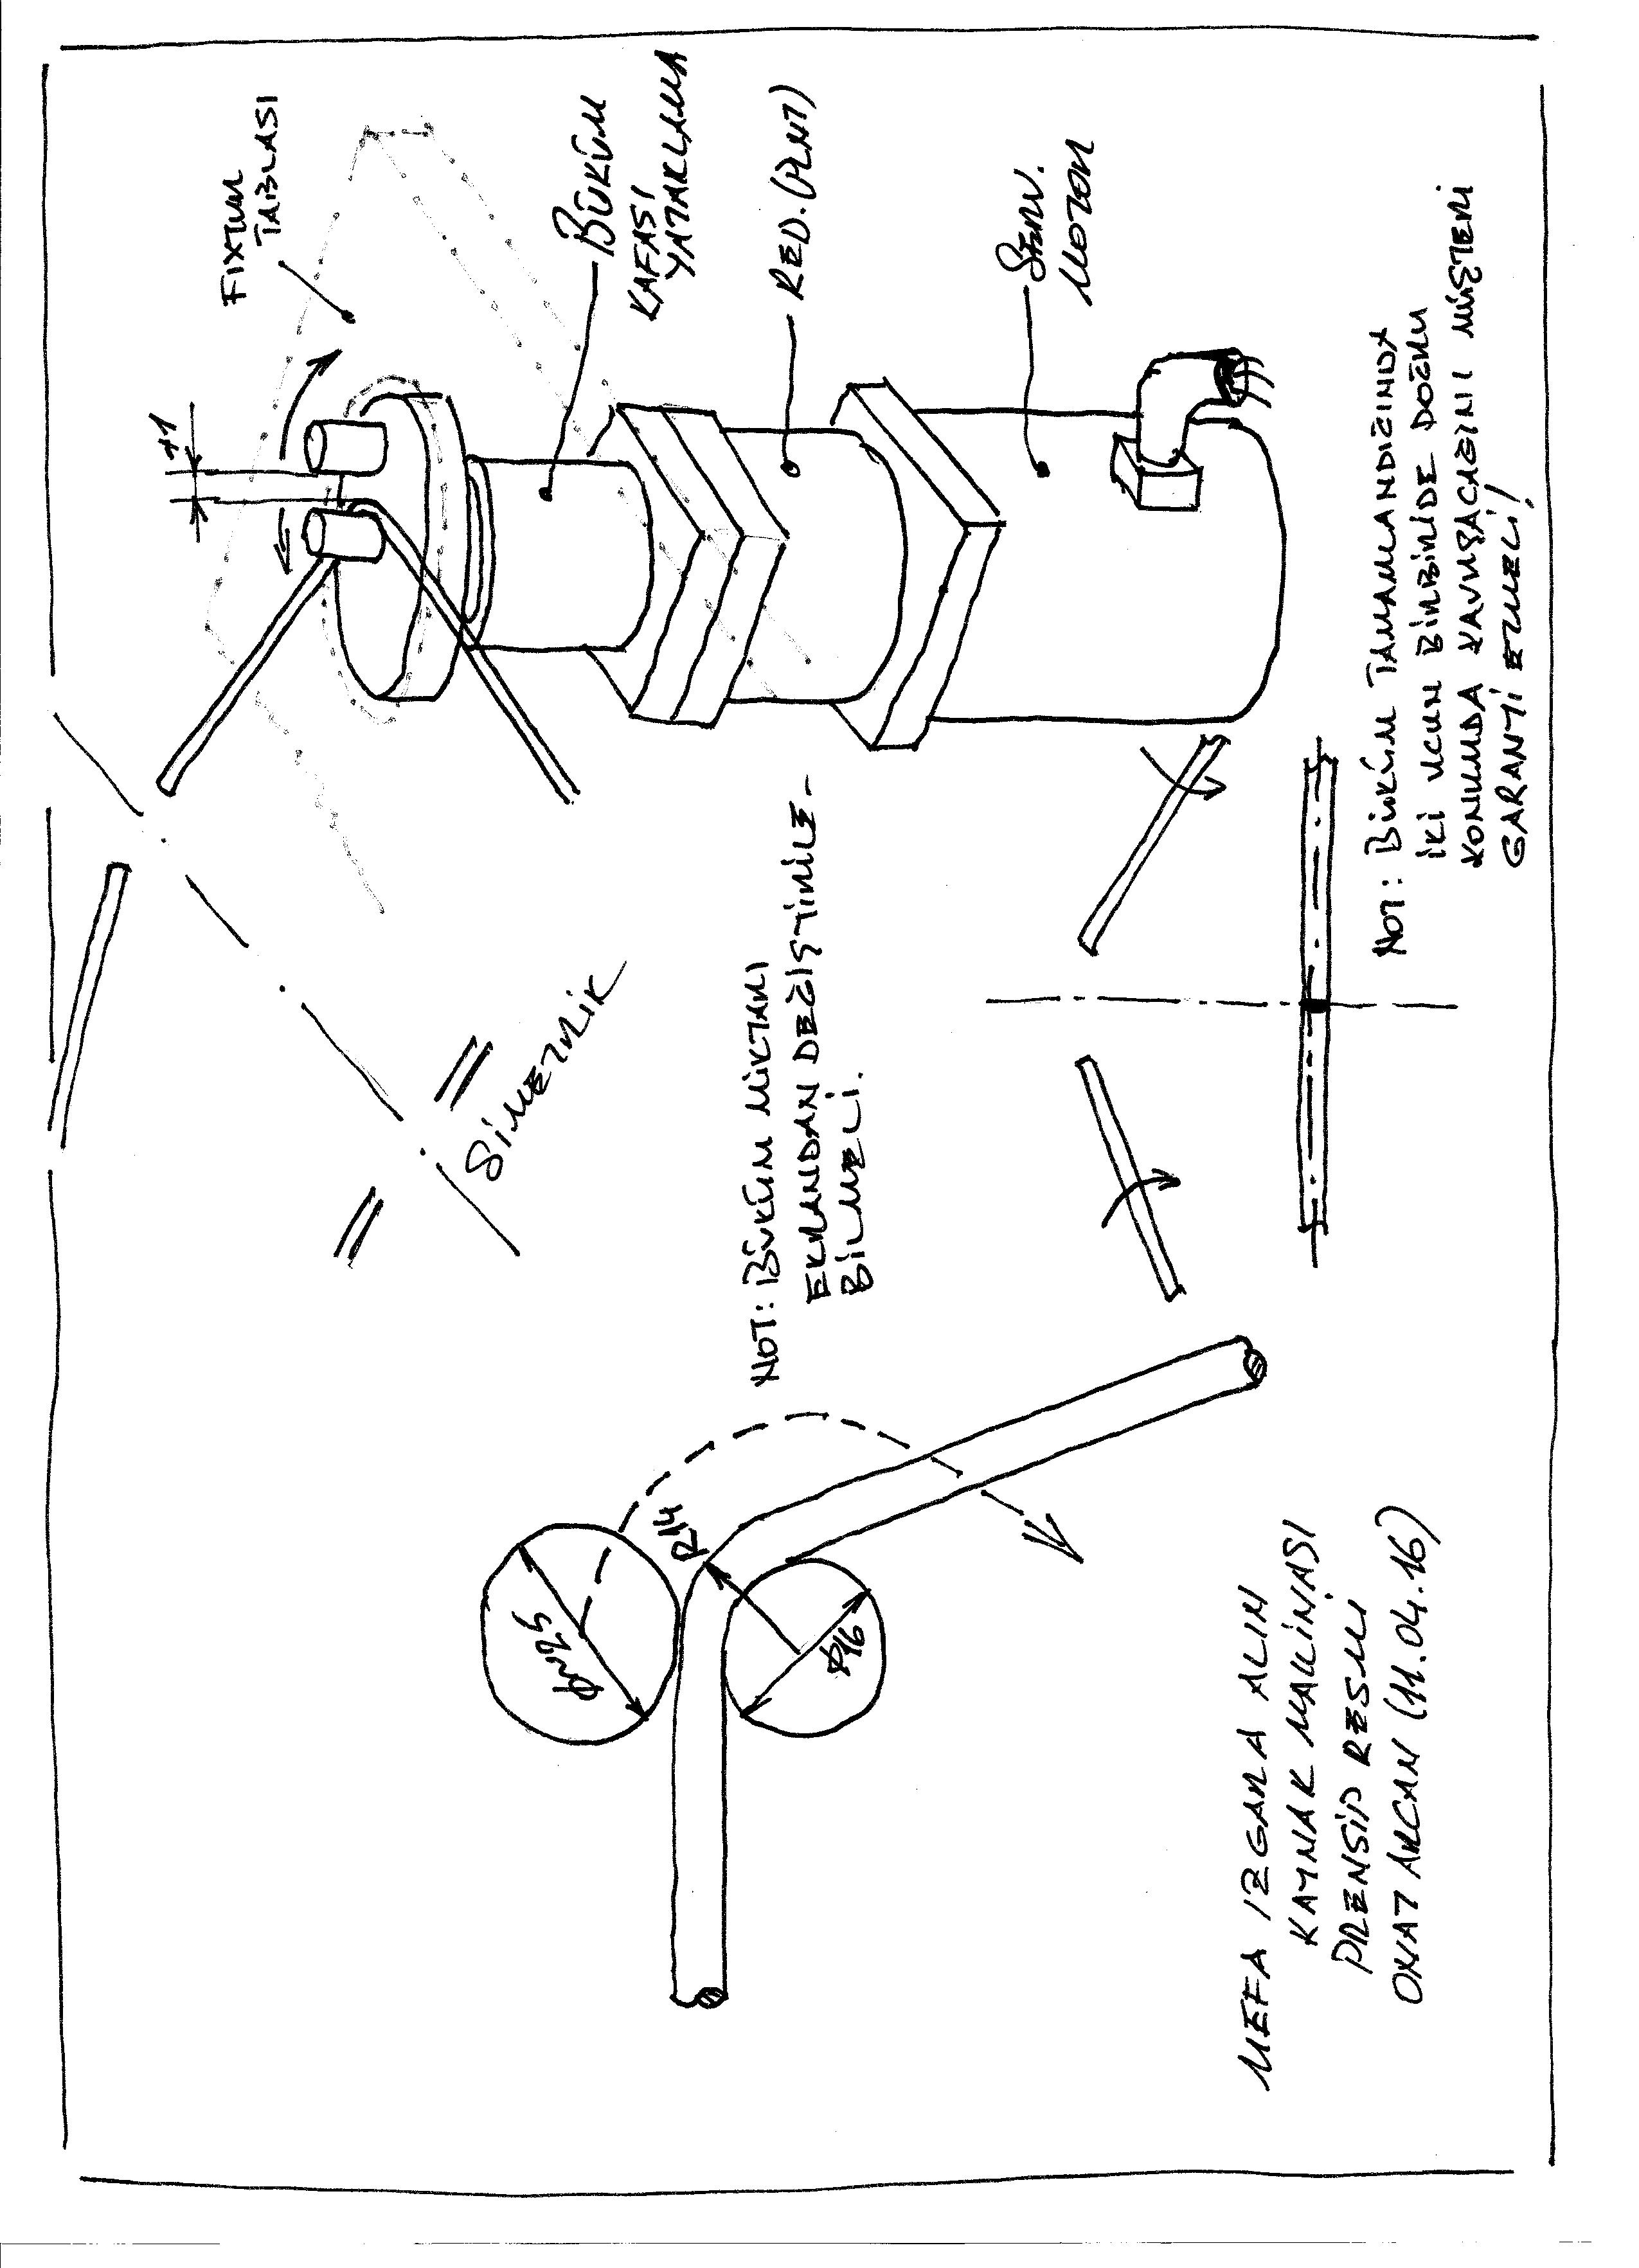 FIXTUR
TABLASI
±1
BÜKÜM
KAFASI
YATAKLAMA
RED. (PLNT)
SERV.
MOTOR
SİMETRİK
NOT: BÜKÜM MİKTARI
EKRANDAN DEĞİŞTİRİLE-
BİLMELİ.
R14
Ø16
NOT: BÜKÜM TAMAMLANDIĞINDA
İKİ UCUN BİRBİRİDE DOĞRU
KONUMDA KAVUŞACAĞINI MÜŞTERİ
GARANTİ ETMELİ!
MEFA IZGARA ALIN
KAYNAK MAKİNASI
PRENSİP RESMİ
ONAT ARCAN (11.04.16)